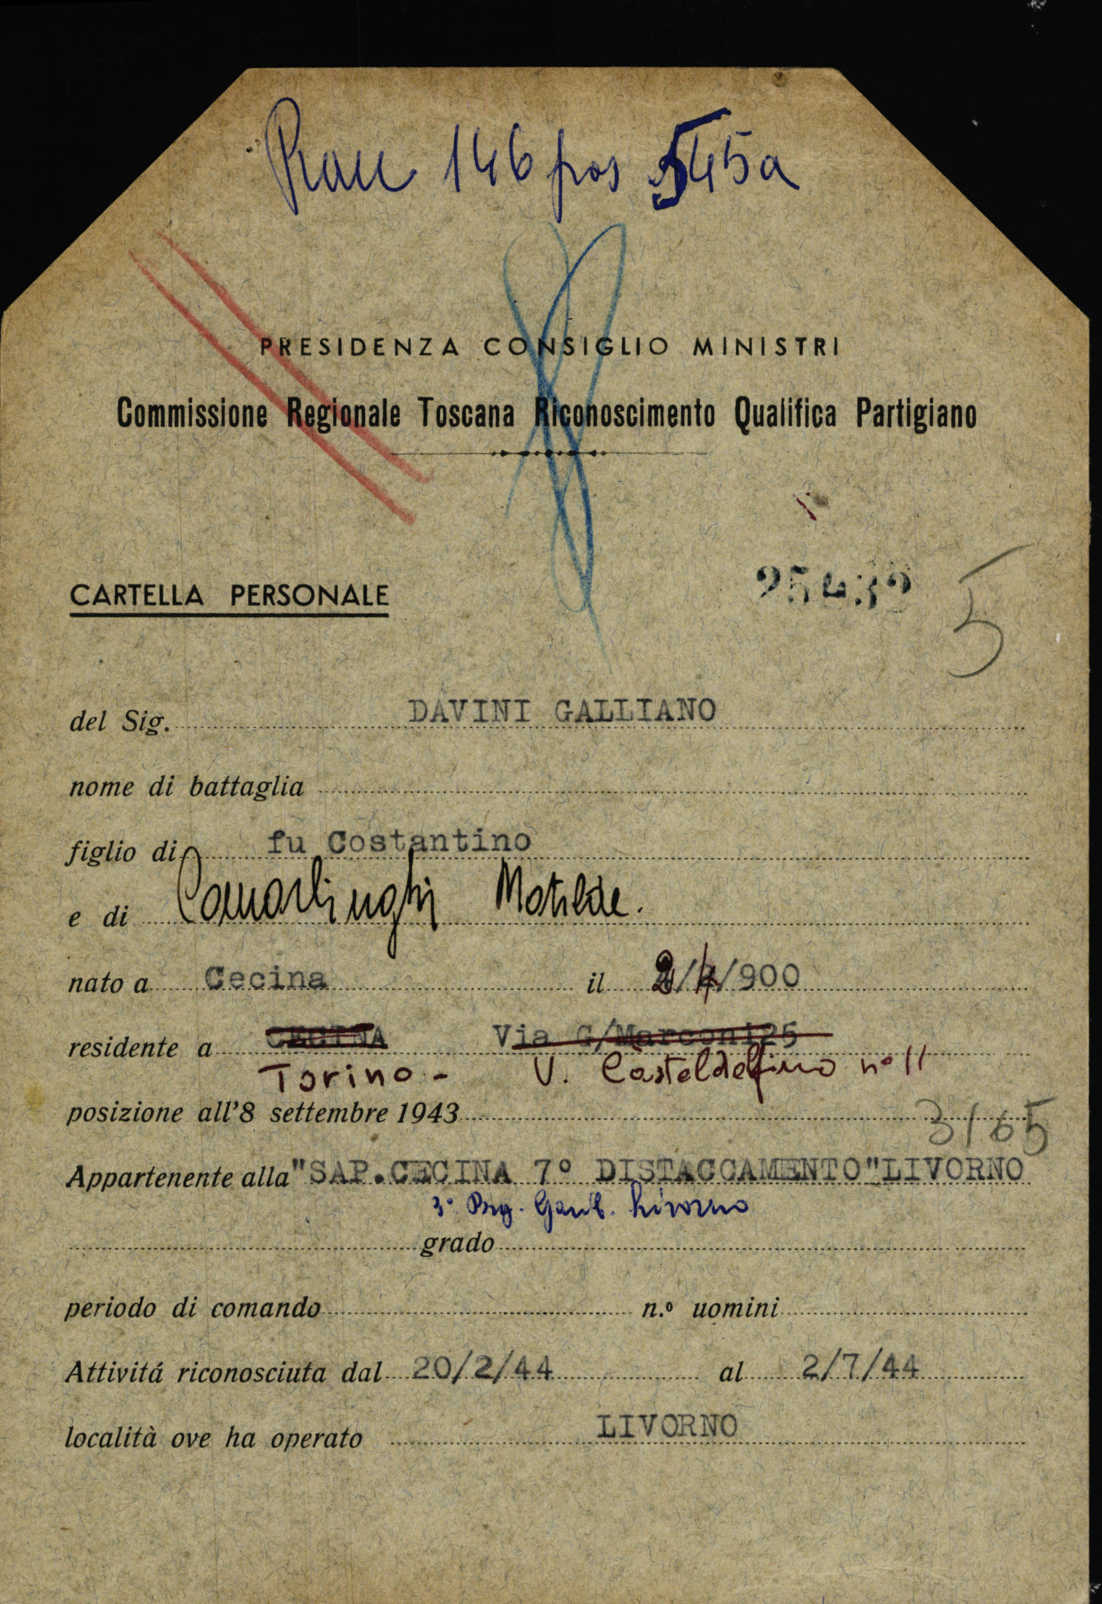 Racc 146 pos 545a
PRESIDENZA CONSIGLIO MINISTRI
Commissione Regionale Toscana Riconoscimento Qualifica Partigiano
CARTELLA PERSONALE
25432
5
del Sig. DAVINI GALLIANO
nome di battaglia
figlio di fu Costantino
e di Camarlinghi Matilde.
nato a Cecina il 2/4/900
residente a CECINA Via G/Marconi25
Torino - V. Casteldelfino n° 11
posizione all'8 settembre 1943
3/65
Appartenente alla "SAP.CECINA 7° DISTACCAMENTO"LIVORNO
3ª Brg. Garib. Livorno
grado
periodo di comando n.º uomini
Attivitá riconosciuta dal 20/2/44 al 2/7/44
località ove ha operato LIVORNO